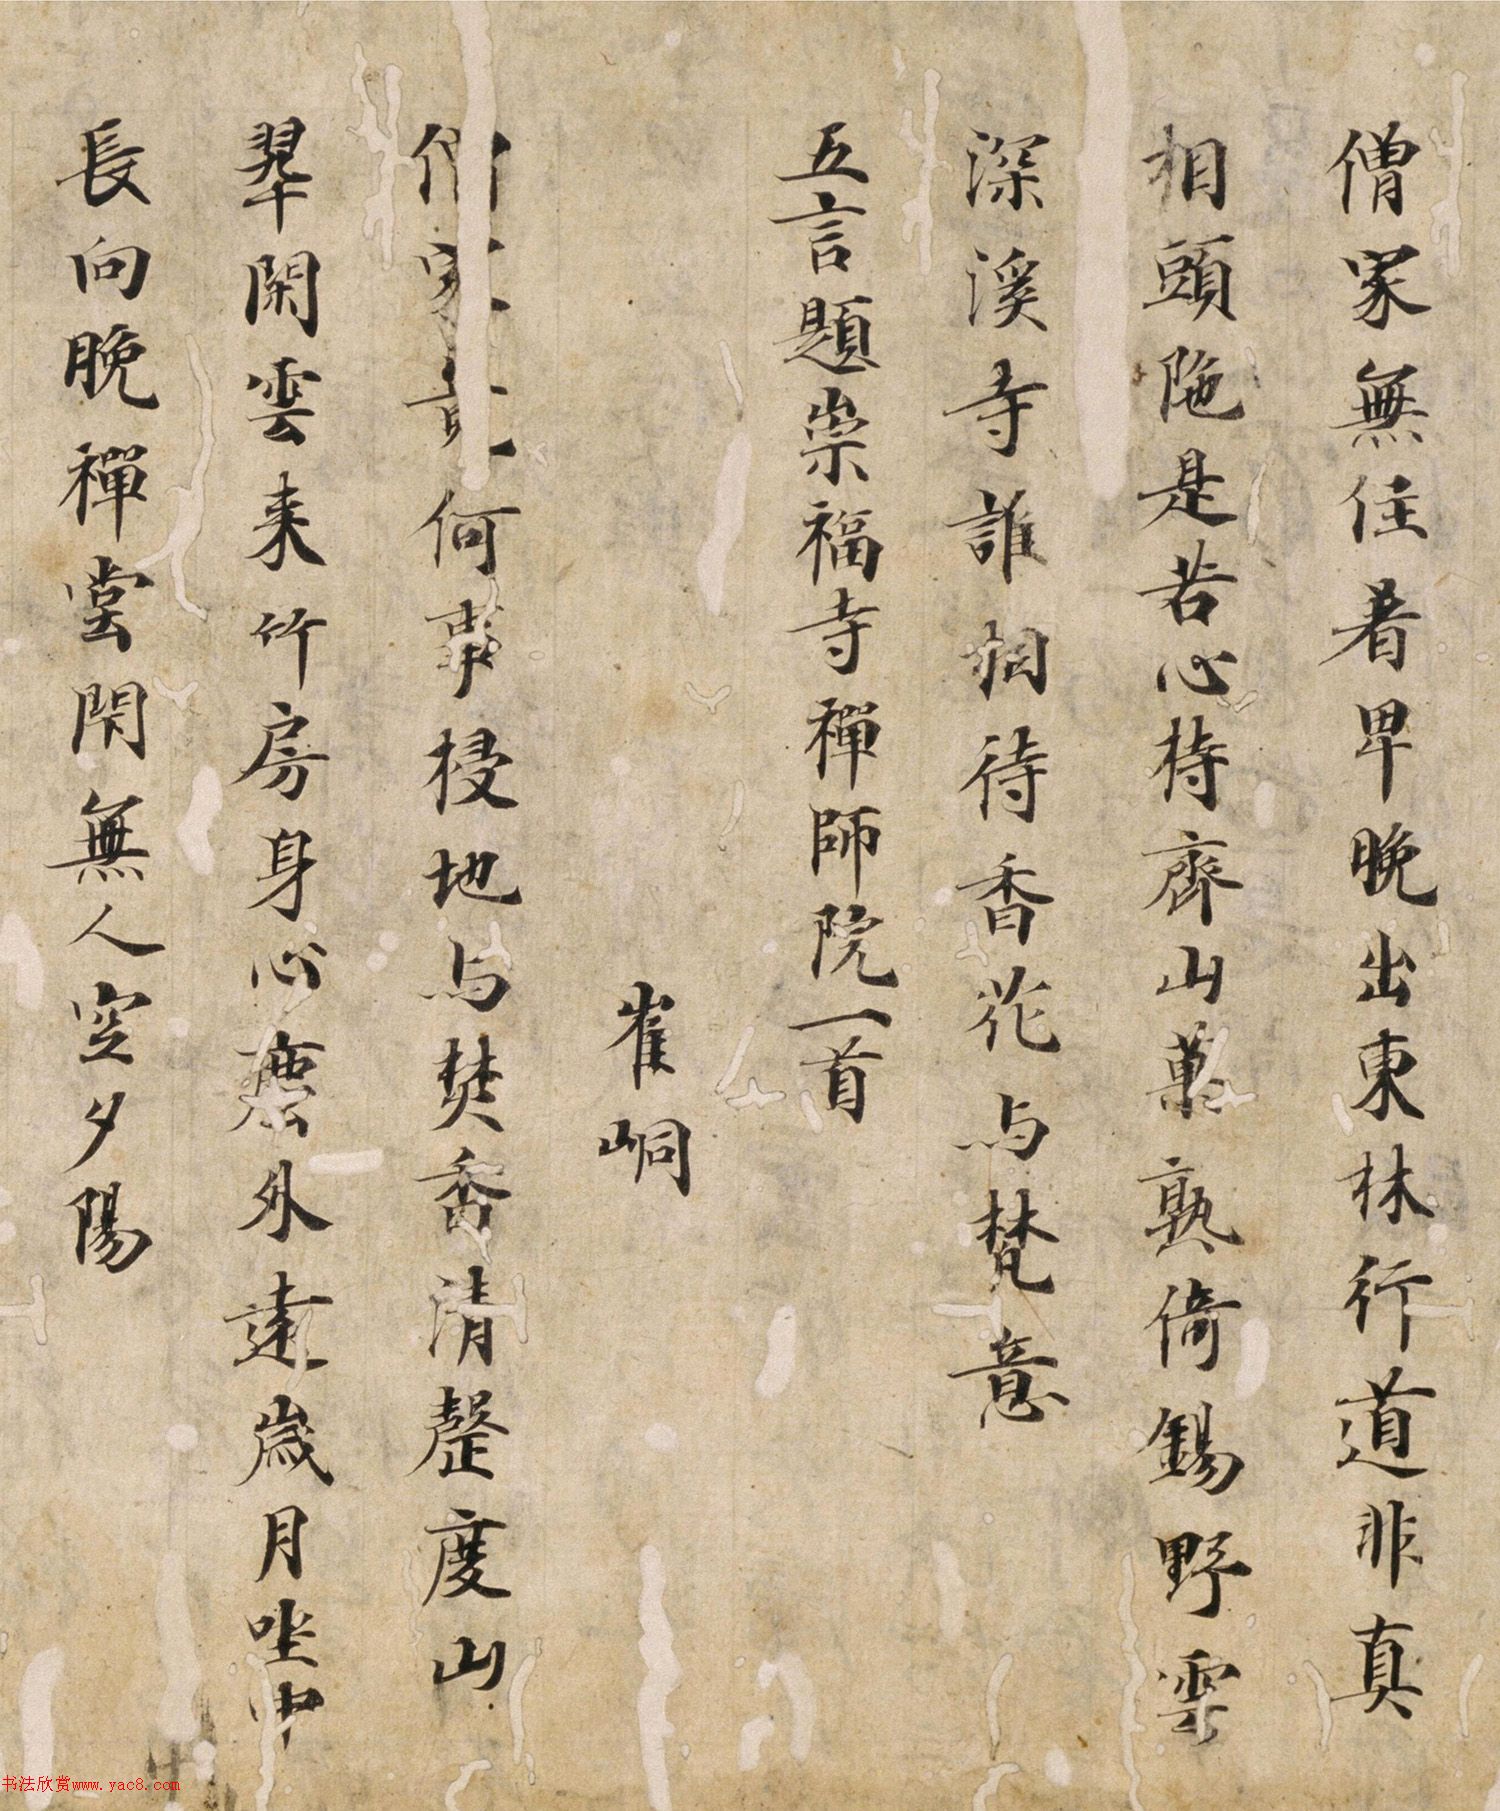 僧家無住着早晚出東林行道非真
相頭陁是苦心持齋山菓熟倚錫野雲
深溪寺誰相待香花与梵音
五言題崇福寺禪師院一首
崔峒
僧家竟何事掃地与焚香清磬度山
翠閑雲来竹房身心塵外遠歲月坐中
長向晚禪堂閑無人空夕陽
书法欣赏www.yac8.com